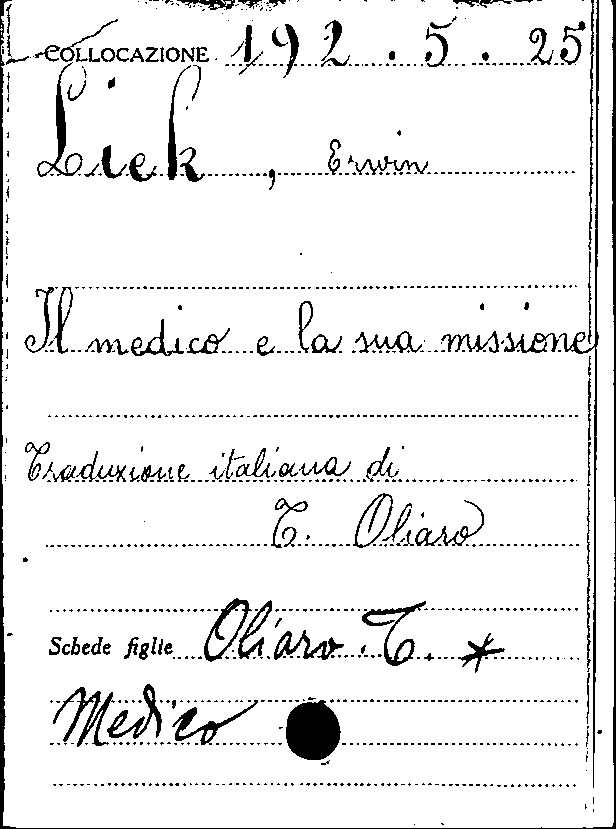 COLLOCAZIONE 192.5.25
Liek, Erwin
Il medico e la sua missione
Traduzione italiana di
T. Oliaro
Schede figlie Oliaro T. *
Medico